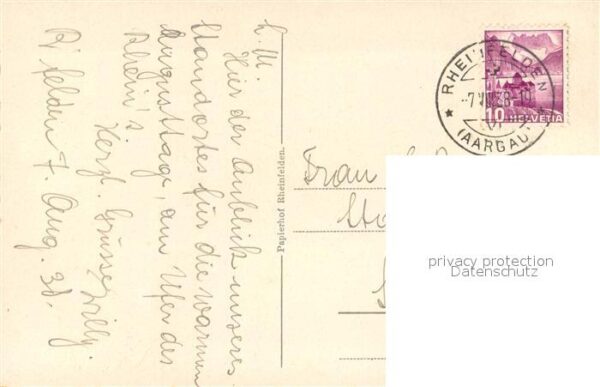 L. M.
Hier der Anblick unseres
Standortes für die warmen
Augusttage, am Ufer des
Rhein's.
Herzl. Grüsse Willy.
R'felden 7. Aug. 38.
Papierhof Rheinfelden.
RHEINFELDEN
-7.VIII.38-10
(AARGAU)
10 HELVETIA
Frau
privacy protection
Datenschutz